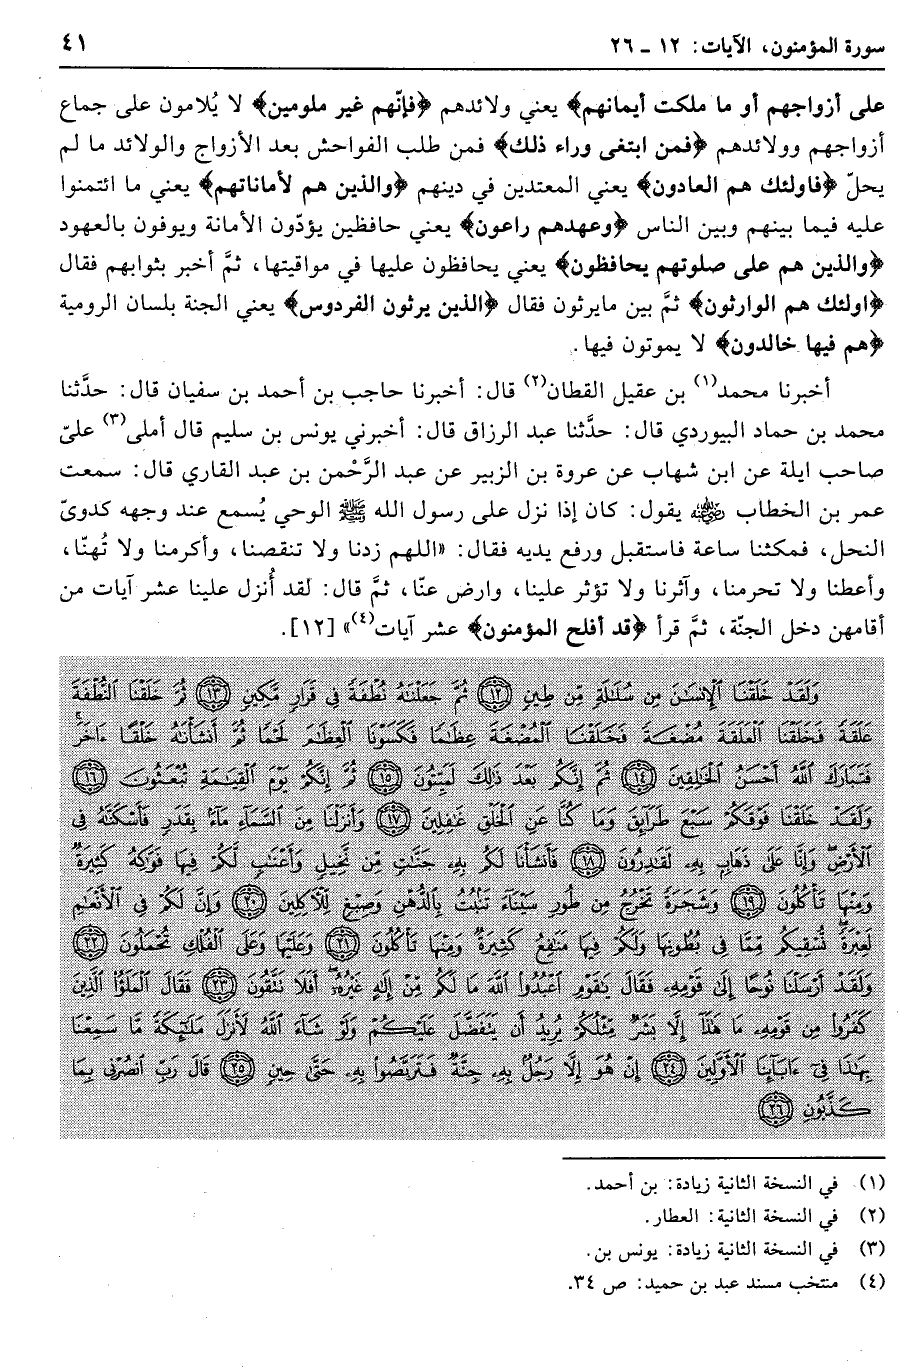 سورة المؤمنون، الآيات: ١٢ ـ ٢٦
٤١
على أزواجهم أو ما ملكت أيمانهم﴾ يعني ولائدهم ﴿فإنّهم غير ملومين﴾ لا يُلامون على جماع
أزواجهم وولائدهم ﴿فمن ابتغى وراء ذلك﴾ فمن طلب الفواحش بعد الأزواج والولائد ما لم
يحلّ ﴿فاولئك هم العادون﴾ يعني المعتدين في دينهم ﴿والذين هم لأماناتهم﴾ يعني ما ائتمنوا
عليه فيما بينهم وبين الناس ﴿وعهدهم راعون﴾ يعني حافظين يؤدّون الأمانة ويوفون بالعهود
﴿والذين هم على صلوتهم يحافظون﴾ يعني يحافظون عليها في مواقيتها، ثمَّ أخبر بثوابهم فقال
﴿اولئك هم الوارثون﴾ ثمَّ بين مايرثون فقال ﴿الذين يرثون الفردوس﴾ يعني الجنة بلسان الرومية
﴿هم فيها خالدون﴾ لا يموتون فيها.
أخبرنا محمد(١) بن عقيل القطان(٢) قال: أخبرنا حاجب بن أحمد بن سفيان قال: حدَّثنا
محمد بن حماد البيوردي قال: حدَّثنا عبد الرزاق قال: أخبرني يونس بن سليم قال أملى(٣) عليّ
صاحب ايلة عن ابن شهاب عن عروة بن الزبير عن عبد الرَّحْمن بن عبد القاري قال: سمعت
عمر بن الخطاب رضي الله عنه يقول: كان إذا نزل على رسول الله ﷺ الوحي يُسمع عند وجهه كدويّ
النحل، فمكثنا ساعة فاستقبل ورفع يديه فقال: «اللهم زدنا ولا تنقصنا، وأكرمنا ولا تُهنّا،
وأعطنا ولا تحرمنا، وآثرنا ولا تؤثر علينا، وارض عنّا، ثمَّ قال: لقد أُنزل علينا عشر آيات من
أقامهن دخل الجنّة، ثمَّ قرأ ﴿قد أفلح المؤمنون﴾ عشر آيات(٤)» [١٢].
وَلَقَدْ خَلَقْنَا ٱلْإِنسَٰنَ مِن سُلَٰلَةٍ مِّن طِينٍ ﴿١٢﴾ ثُمَّ جَعَلْنَٰهُ نُطْفَةً فِي قَرَارٍ مَّكِينٍ ﴿١٣﴾ ثُمَّ خَلَقْنَا ٱلنُّطْفَةَ
عَلَقَةً فَخَلَقْنَا ٱلْعَلَقَةَ مُضْغَةً فَخَلَقْنَا ٱلْمُضْغَةَ عِظَٰمًا فَكَسَوْنَا ٱلْعِظَٰمَ لَحْمًا ثُمَّ أَنشَأْنَٰهُ خَلْقًا ءَاخَرَ
فَتَبَارَكَ ٱللَّهُ أَحْسَنُ ٱلْخَٰلِقِينَ ﴿١٤﴾ ثُمَّ إِنَّكُم بَعْدَ ذَٰلِكَ لَمَيِّتُونَ ﴿١٥﴾ ثُمَّ إِنَّكُمْ يَوْمَ ٱلْقِيَٰمَةِ تُبْعَثُونَ ﴿١٦﴾
وَلَقَدْ خَلَقْنَا فَوْقَكُمْ سَبْعَ طَرَآئِقَ وَمَا كُنَّا عَنِ ٱلْخَلْقِ غَٰفِلِينَ ﴿١٧﴾ وَأَنزَلْنَا مِنَ ٱلسَّمَآءِ مَآءًۢ بِقَدَرٍ فَأَسْكَنَّٰهُ فِي
ٱلْأَرْضِ وَإِنَّا عَلَىٰ ذَهَابٍۭ بِهِۦ لَقَٰدِرُونَ ﴿١٨﴾ فَأَنشَأْنَا لَكُم بِهِۦ جَنَّٰتٍ مِّن نَّخِيلٍ وَأَعْنَٰبٍ لَّكُمْ فِيهَا فَوَٰكِهُ كَثِيرَةٌ
وَمِنْهَا تَأْكُلُونَ ﴿١٩﴾ وَشَجَرَةً تَخْرُجُ مِن طُورِ سَيْنَآءَ تَنۢبُتُ بِٱلدُّهْنِ وَصِبْغٍ لِّلْآكِلِينَ ﴿٢٠﴾ وَإِنَّ لَكُمْ فِي ٱلْأَنْعَٰمِ
لَعِبْرَةً نُّسْقِيكُم مِّمَّا فِي بُطُونِهَا وَلَكُمْ فِيهَا مَنَٰفِعُ كَثِيرَةٌ وَمِنْهَا تَأْكُلُونَ ﴿٢١﴾ وَعَلَيْهَا وَعَلَى ٱلْفُلْكِ تُحْمَلُونَ ﴿٢٢﴾
وَلَقَدْ أَرْسَلْنَا نُوحًا إِلَىٰ قَوْمِهِۦ فَقَالَ يَٰقَوْمِ ٱعْبُدُوا۟ ٱللَّهَ مَا لَكُم مِّنْ إِلَٰهٍ غَيْرُهُۥٓ أَفَلَا تَتَّقُونَ ﴿٢٣﴾ فَقَالَ ٱلْمَلَؤُا۟ ٱلَّذِينَ
كَفَرُوا۟ مِن قَوْمِهِۦ مَا هَٰذَآ إِلَّا بَشَرٌ مِّثْلُكُمْ يُرِيدُ أَن يَتَفَضَّلَ عَلَيْكُمْ وَلَوْ شَآءَ ٱللَّهُ لَأَنزَلَ مَلَٰٓئِكَةً مَّا سَمِعْنَا
بِهَٰذَا فِيٓ ءَابَآئِنَا ٱلْأَوَّلِينَ ﴿٢٤﴾ إِنْ هُوَ إِلَّا رَجُلٌۢ بِهِۦ جِنَّةٌ فَتَرَبَّصُوا۟ بِهِۦ حَتَّىٰ حِينٍ ﴿٢٥﴾ قَالَ رَبِّ ٱنصُرْنِي بِمَا
كَذَّبُونِ ﴿٢٦﴾
(١) في النسخة الثانية زيادة: بن أحمد.
(٢) في النسخة الثانية: العطار.
(٣) في النسخة الثانية زيادة: يونس بن.
(٤) منتخب مسند عبد بن حميد: ص ٣٤.